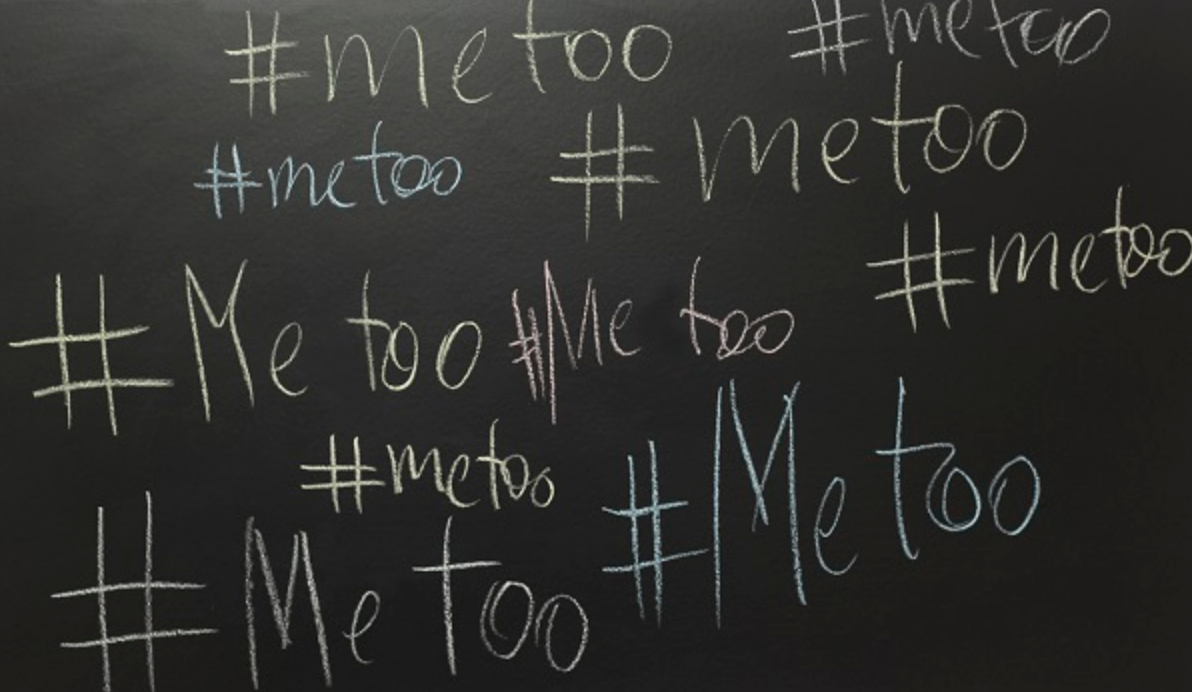 #metoo
#metoo
#metoo
#metoo
#metoo
#Me too
#Me too
#metoo
#Me too
#Me too